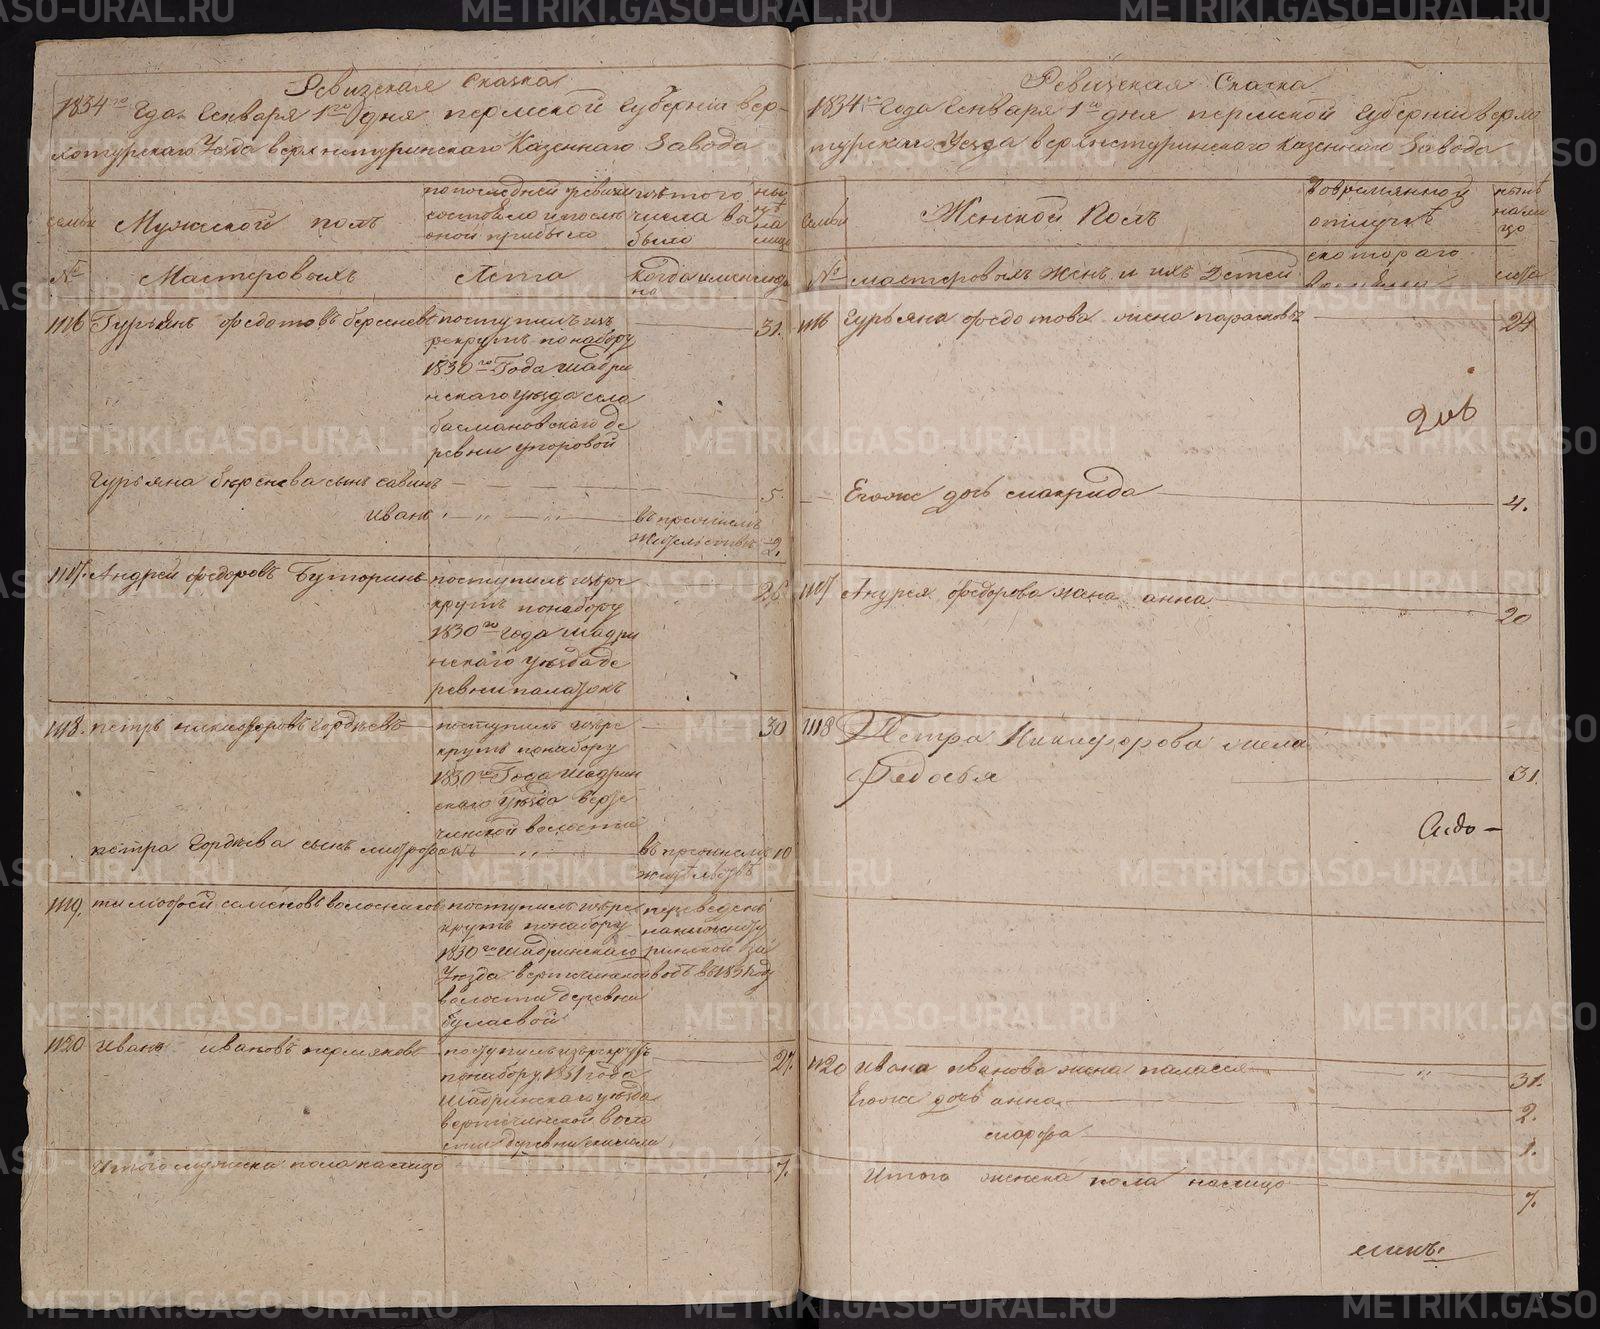 Ревизская Сказка
1834го Года Генваря 1го дня пермской губерніи вер-
хотурскаго Уезда верхнетуринскаго Казеннаго Завода
семьи
Мужеской полъ
по последней ревизіи
состояло и после
оной прибыло
изъ того
числа вы
было
ныне
на
лицо
№
Мастеровыхъ
Лета
Когда именно
1116 Гурьянъ федотовъ береснев поступилъ изъ 31.
рекрутъ по набору
1830го Года Шадри
нскаго уезда села
басмановскаго де
ревни упоровой
гурьяна береснева сынъ савинъ 5.
иванъ
2.
1117. Андрей федоровъ Буторинъ поступилъ изъ ре 26
крутъ по набору
1830го года шадри
нскаго уезда де
ревни палатокъ
1118. петръ никифоровъ гордеевъ поступилъ изъ ре 30
крутъ по набору
1830го Года шадрин
скаго Уезда верте
чинской волости
петра Гордеева сынъ митрофанъ 10
1119. тимофей семеновъ поступилъ изъ ре переведенъ
крутъ по набору
1830го шадринскаго
Уезда вертечинской
волости деревни
булаевой
1120 Иванъ ивановъ пермяковъ поступилъ изъ рекрутъ 27.
по набору 1831 года
Шадринскаго уезда
вертечинской воло
сти деревни
Итого мужеска пола налицо 7.
Ревизская Сказка
1834го Года Генваря 1го дня пермской губерніи верхо
турскаго Уезда верхнетуринскаго Казеннаго Завода
семьи
Женской Полъ
во временной
отлучке
ныне
на ли
цо
№ мастеровыхъ женъ и ихъ Детей
с котораго
лета
1116 Гурьяна федотова жена парасковья 24
206
Егоже дочь макрида 4.
1117 Андрея федорова жена анна 20
1118 Петра Никифорова жена
Федосья 31.
1120 Ивана иванова жена паласея 31.
Егоже дочь анна 2.
марфа 1.
Итого женска пола налицо 7.